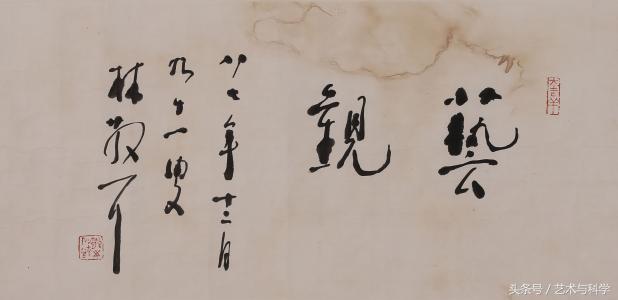 藝觀
八七年十二月
九十一叟
林散耳
头条号／艺术与科学